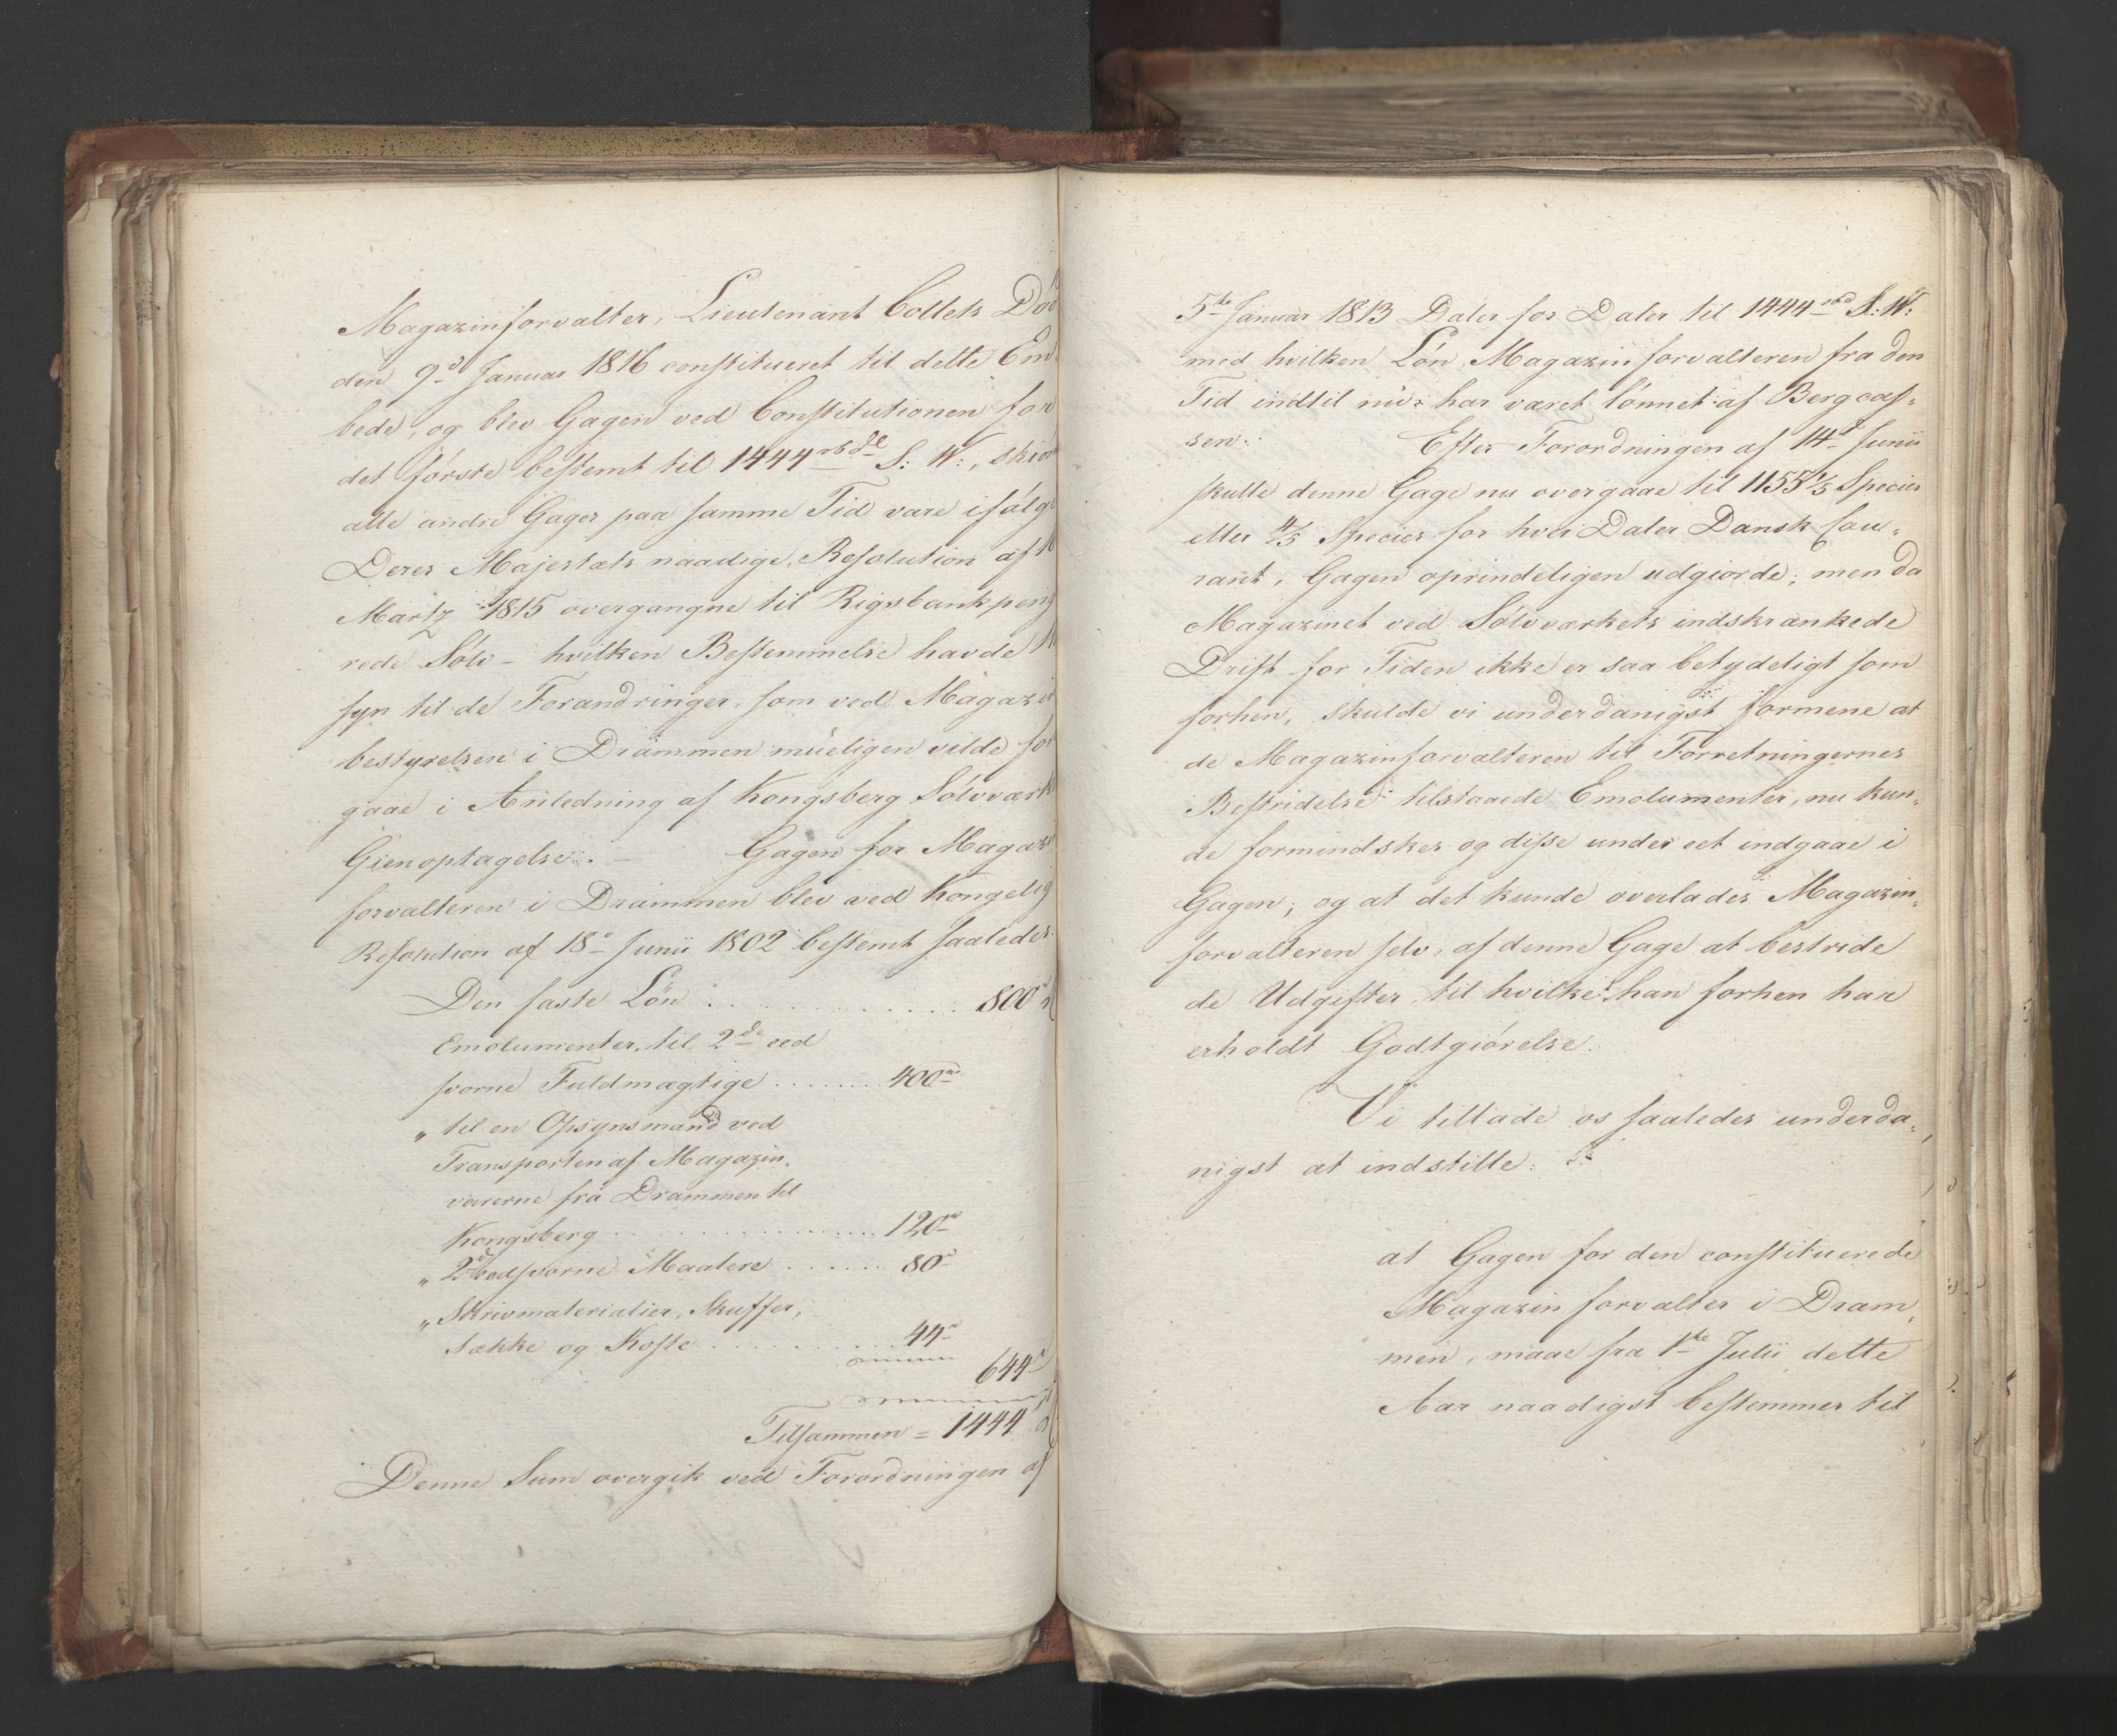 Magazinforvalter, Lieutenant Collets Død
den 9d Januar 1816 constitueret til dette Em
bede, og blev Gagen ved Constitutionen for
det første bestemt til 1444 rbdl S: V:, skiønt
alle andre Gager paa samme Tid vare ifølge
Deres Majestæts naadige Resolution af
Martz 1815 overgangne til Rigsbankpenge
rede Sølv – hvilken Bestemmelse havde
syn til de Forandringer, som ved Magazin
bestyrelsen i Drammen mueligen vilde fore
gaae i Anledning af Kongsberg Sølvværks
Gienoptagelse. – Gagen for Magazin
forvalteren i Drammen blev ved Kongelig
Resolution af 18de Junii 1802 bestemt saaledes:
Den faste Løn . . . . . . . . . . 800 rd
Emolumenter, til 2de eed
svorne Fuldmægtige . . . . . . . 400 rd
" til en Opsynsmand ved
Transporten af Magazin,
varerne fra Drammen til
Kongsberg . . . . . . . . . . 120 rd
" 2de eedsvorne Maalere . . . . . . 80 –
" Skrivmaterialier, Skuffer,
Sække og Koste . . . . . . . . . 44 –
644 –
Tilsammen = 1444 rd
Denne Sum overgik ved Forordningen af
5te Januar 1813 Daler for Daler til 1444 rbd S: V:
med hvilken Løn Magazinforvalteren fra den
Tid indtil nu har været lønnet af Bergcas,
sen. Efter Forordningen af 14de Junii
skulle denne Gage nu overgaae til 1155 1/5 Species
eller 4/5 Species for hver Daler Dansk Cou,
rant, Gagen oprindeligen udgiorde; men da
Magazinet ved Sølvværkets indskrænkede
Drift for Tiden ikke er saa betydeligt som
forhen, skulde vi underdanigst formene at
de Magazinforvalteren til Forretningernes
Bestridelse tilstaaede Emolumenter, nu kun,
de formindskes og disse under eet indgaae i
Gagen; og at det kunde overlades Magazin,
forvalteren selv, af denne Gage at bestride
de Udgifter til hvilke han forhen har
erholdt Godtgiørelse.
Vi tillade os saaledes underda,
nigst at indstille:
at Gagen for den constituerede
Magazinforvalter i Dram,
men, maae fra 1ste Julii dette
Aar naadigst bestemmes til